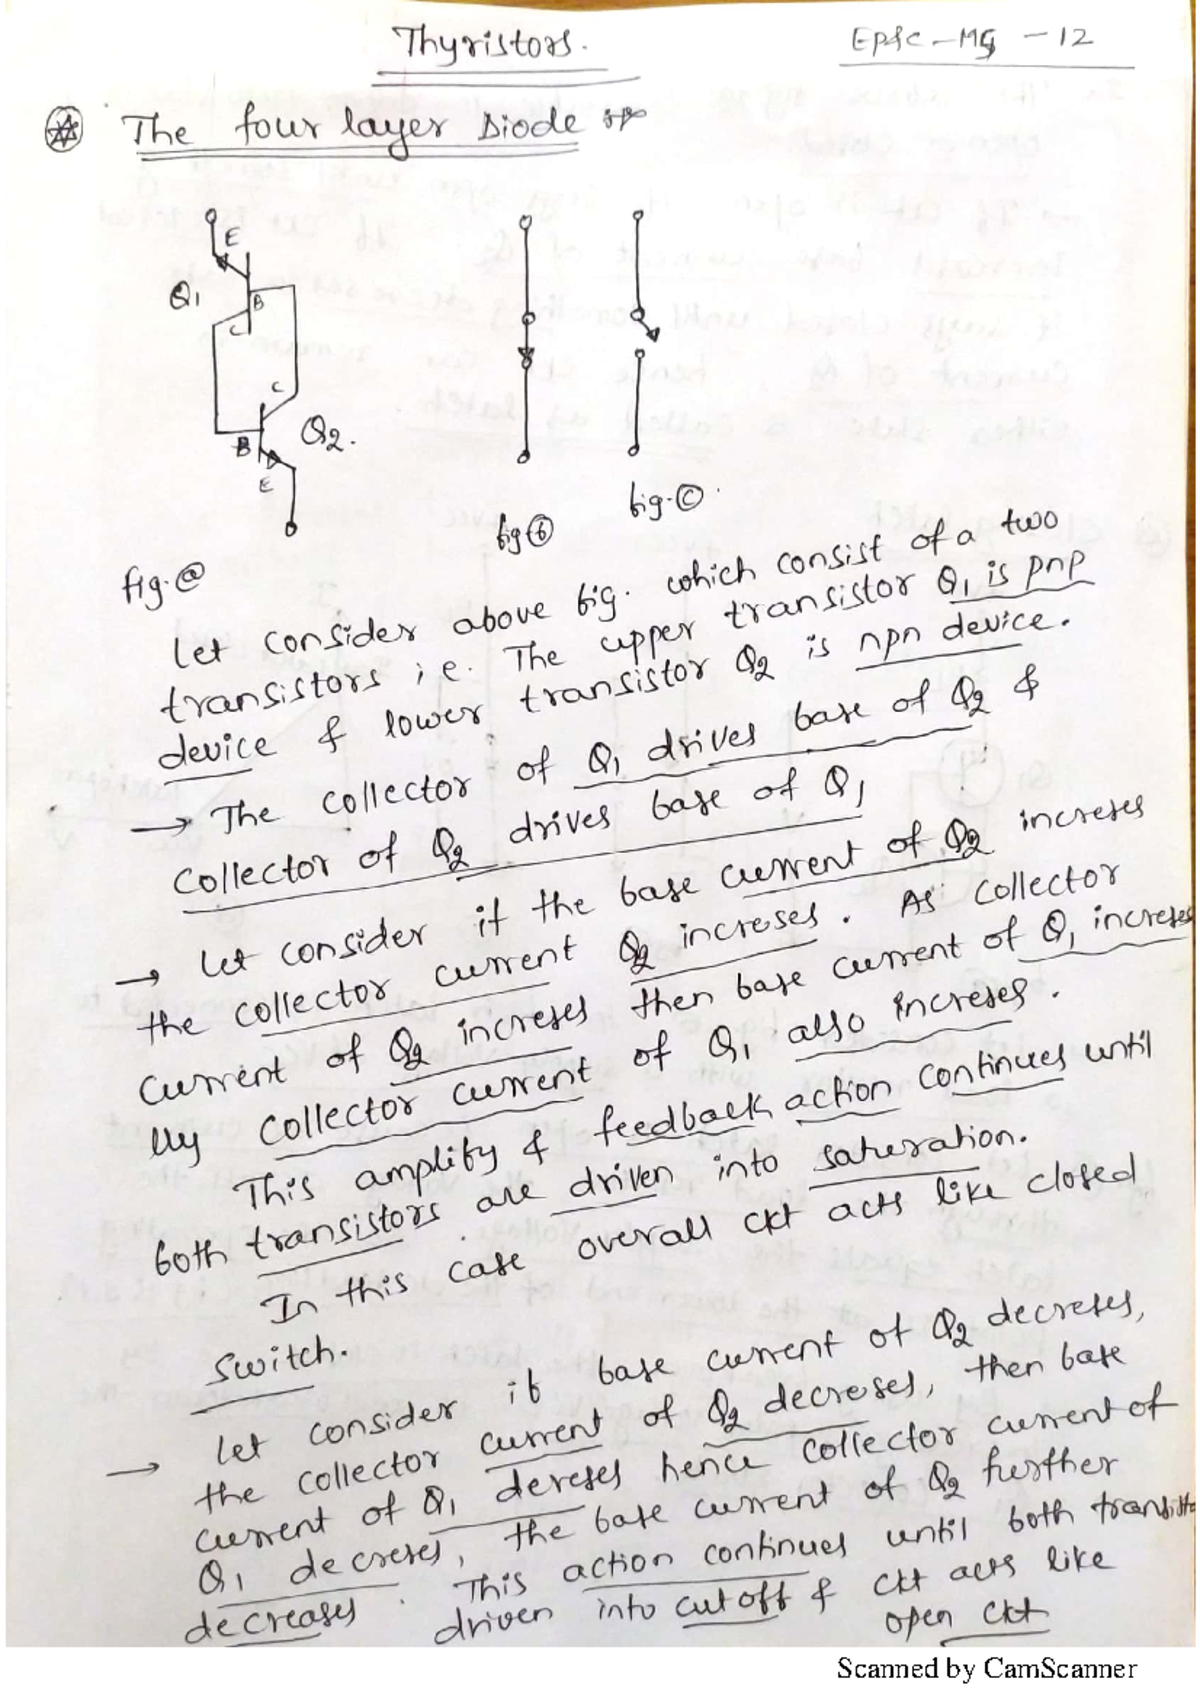 Thyristors.
EPSC-MG -12
The four layer Diode :-
E
Q1
B
C
C
Q2.
B
E
fig.ⓐ
fig ⓑ
fig.ⓒ.
Let consider above fig. which consist of a two
transistors i.e. The upper transistor Q1 is pnp
device & lower transistor Q2 is npn device.
→ The collector of Q1 drives base of Q2 &
collector of Q2 drives base of Q1
→ Let consider if the base current of Q2 increses
the collector current Q2 increses. As collector
current of Q2 increses then base current of Q1 increses
lly collector current of Q1 also increses.
This amplify & feedback action continues until
both transistors are driven into saturation.
In this case overall ckt acts like closed
switch.
→ Let consider if base current of Q2 decreses,
the collector current of Q2 decreses, then base
current of Q1 dereses hence collector current of
Q1 decreses, the base current of Q2 further
decreases. This action continues until both transisto
driven into cut off & ckt acts like
open ckt
Scanned by CamScanner